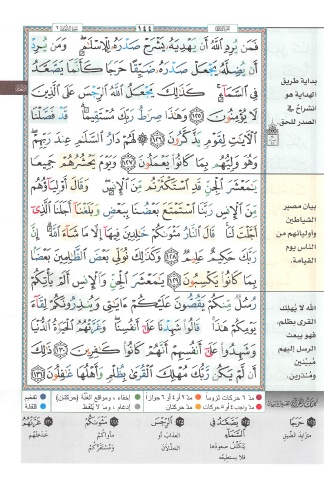 ١٤٤
فَمَن يُرِدِ اللَّهُ أَن يَهْدِيَهُ يَشْرَحْ صَدْرَهُ لِلْإِسْلَامِ وَمَن يُرِدْ
أَن يُضِلَّهُ يَجْعَلْ صَدْرَهُ ضَيِّقًا حَرَجًا كَأَنَّمَا يَصَّعَّدُ
فِي السَّمَاءِ كَذَلِكَ يَجْعَلُ اللَّهُ الرِّجْسَ عَلَى الَّذِينَ
لَا يُؤْمِنُونَ ١٢٥ وَهَذَا صِرَاطُ رَبِّكَ مُسْتَقِيمًا قَدْ فَصَّلْنَا
الْآيَاتِ لِقَوْمٍ يَذَّكَّرُونَ ١٢٦ لَهُمْ دَارُ السَّلَامِ عِندَ رَبِّهِمْ
وَهُوَ وَلِيُّهُم بِمَا كَانُوا يَعْمَلُونَ ١٢٧ وَيَوْمَ يَحْشُرُهُمْ جَمِيعًا
يَا مَعْشَرَ الْجِنِّ قَدِ اسْتَكْثَرْتُم مِّنَ الْإِنسِ وَقَالَ أَوْلِيَاؤُهُم
مِّنَ الْإِنسِ رَبَّنَا اسْتَمْتَعَ بَعْضُنَا بِبَعْضٍ وَبَلَغْنَا أَجَلَنَا الَّذِي
أَجَّلْتَ لَنَا قَالَ النَّارُ مَثْوَاكُمْ خَالِدِينَ فِيهَا إِلَّا مَا شَاءَ اللَّهُ إِنَّ
رَبَّكَ حَكِيمٌ عَلِيمٌ ١٢٨ وَكَذَلِكَ نُوَلِّي بَعْضَ الظَّالِمِينَ بَعْضًا
بِمَا كَانُوا يَكْسِبُونَ ١٢٩ يَا مَعْشَرَ الْجِنِّ وَالْإِنسِ أَلَمْ يَأْتِكُمْ
رُسُلٌ مِّنكُمْ يَقُصُّونَ عَلَيْكُمْ آيَاتِي وَيُنذِرُونَكُمْ لِقَاءَ
يَوْمِكُمْ هَذَا قَالُوا شَهِدْنَا عَلَى أَنفُسِنَا وَغَرَّتْهُمُ الْحَيَاةُ الدُّنْيَا
وَشَهِدُوا عَلَى أَنفُسِهِمْ أَنَّهُمْ كَانُوا كَافِرِينَ ١٣٠ ذَلِكَ
أَن لَّمْ يَكُن رَّبُّكَ مُهْلِكَ الْقُرَى بِظُلْمٍ وَأَهْلُهَا غَافِلُونَ ١٣١
بداية طريق
الهداية هو
انشراح في
الصدر للحق
بيان مصير
الشياطين
وأوليائهم من
الناس يوم
القيامة.
الله لا يُهلك
القرى بظلم،
فهو يبعث
الرسل إليهم
مُبَيِّنين
ومُنذرين.
مدّ ٦ حركات لزوماً مدّ ٢ أو ٤ أو ٦ جوازاً إخفاء، ومواقع الغُنَّة (حركتان) تفخيم
مدّ واجب ٤ أو ٥ حركات مدّ حركتان إدغام، وما لا يُلفظ قلقلة
حَرَجًا
متزايد الضيق
يَصَّعَّدُ فِي السَّمَاءِ
يتكلّف صعودها
فلا يستطيعُه
الرِّجْسَ
العذاب أو
الخذلان
مَثْوَاكُمْ
مأواكم
ومُستقرّكم
غَرَّتْهُمُ
خدعتهم